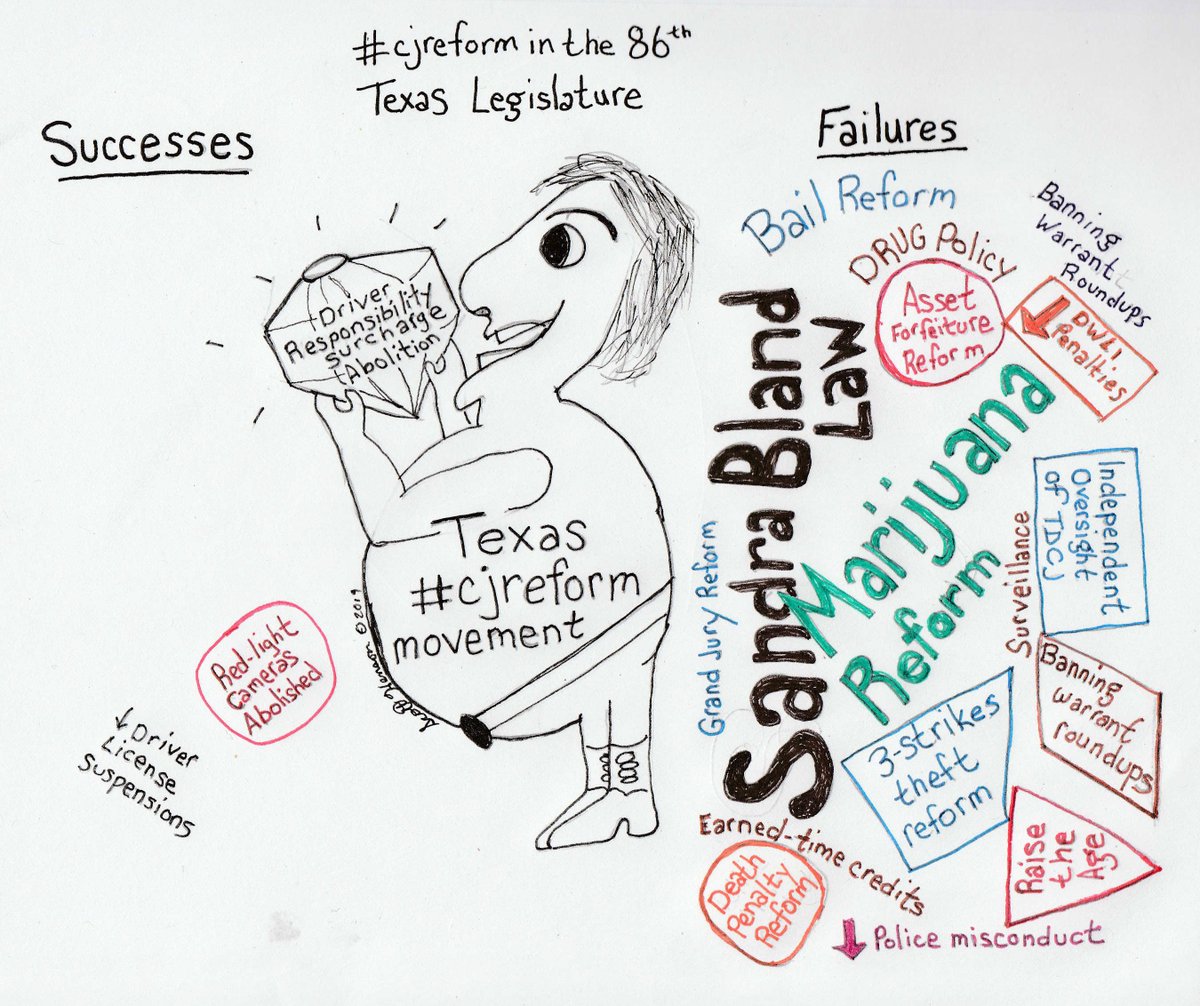 #cjreform in the 86th
Texas Legislature
Successes
Driver
Responsibility
Surcharge
Abolition
Texas
#cjreform
movement
Red-light
Cameras
Abolished
↓ Driver
License
Suspensions
©2019
Scott Henson
Failures
Bail Reform
DRUG Policy
Banning
Warrant
Roundups
Asset
Forfeiture
Reform
↓ DWLI
Penalties
Sandra Bland
Law
Marijuana
Reform
Grand Jury Reform
Independent
Oversight
of TDCJ
Surveillance
Banning
warrant
roundups
3-strikes
theft
reform
Raise
the
Age
Earned-time credits
Death
Penalty
Reform
↓ Police misconduct